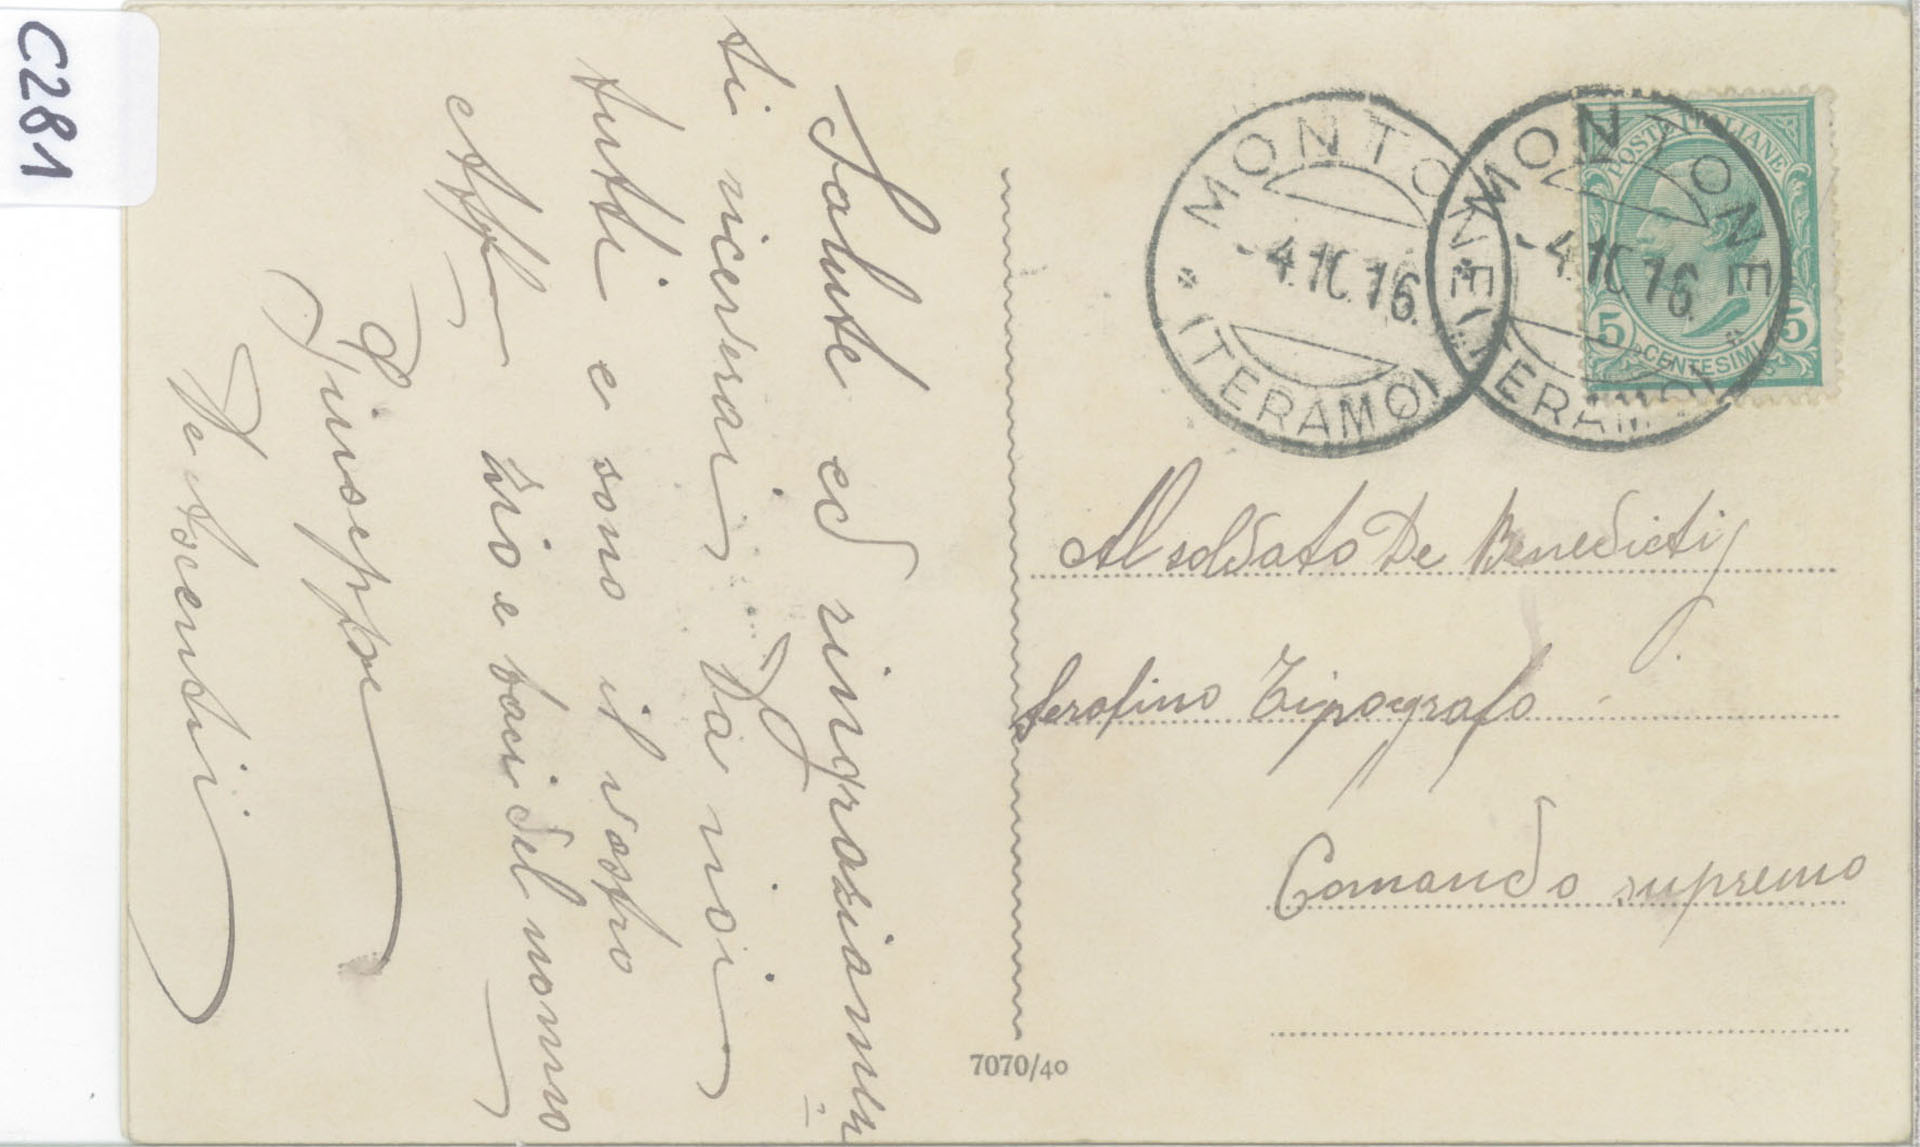 C281
Salute ed ringraziamen=
ti riceverai da noi
tutti e sono il vostro
Aff zio e baci del nonno
Giuseppe
De Ascentiis
MONTONE
(TERAMO)
-4.10.16
MONTONE
(TERAMO)
-4.10.16
POSTE ITALIANE
5 CENTESIMI 5
Al soldato De Benedictis
Serafino Tipografo
Comando supremo
7070/40